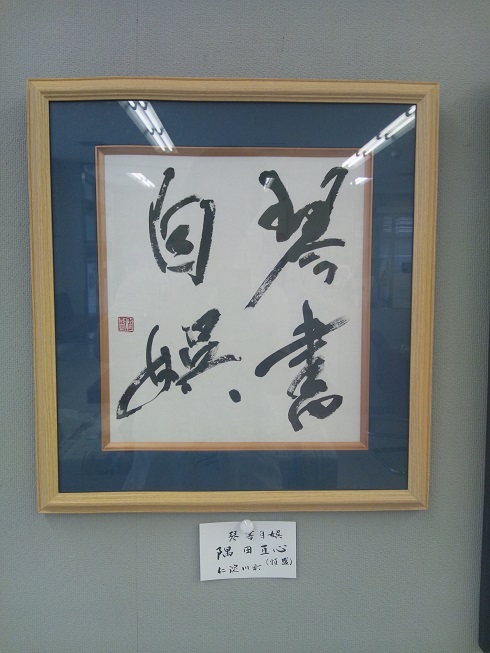 琴書
自娯
琴書自娯
隅田直心
仁淀川町